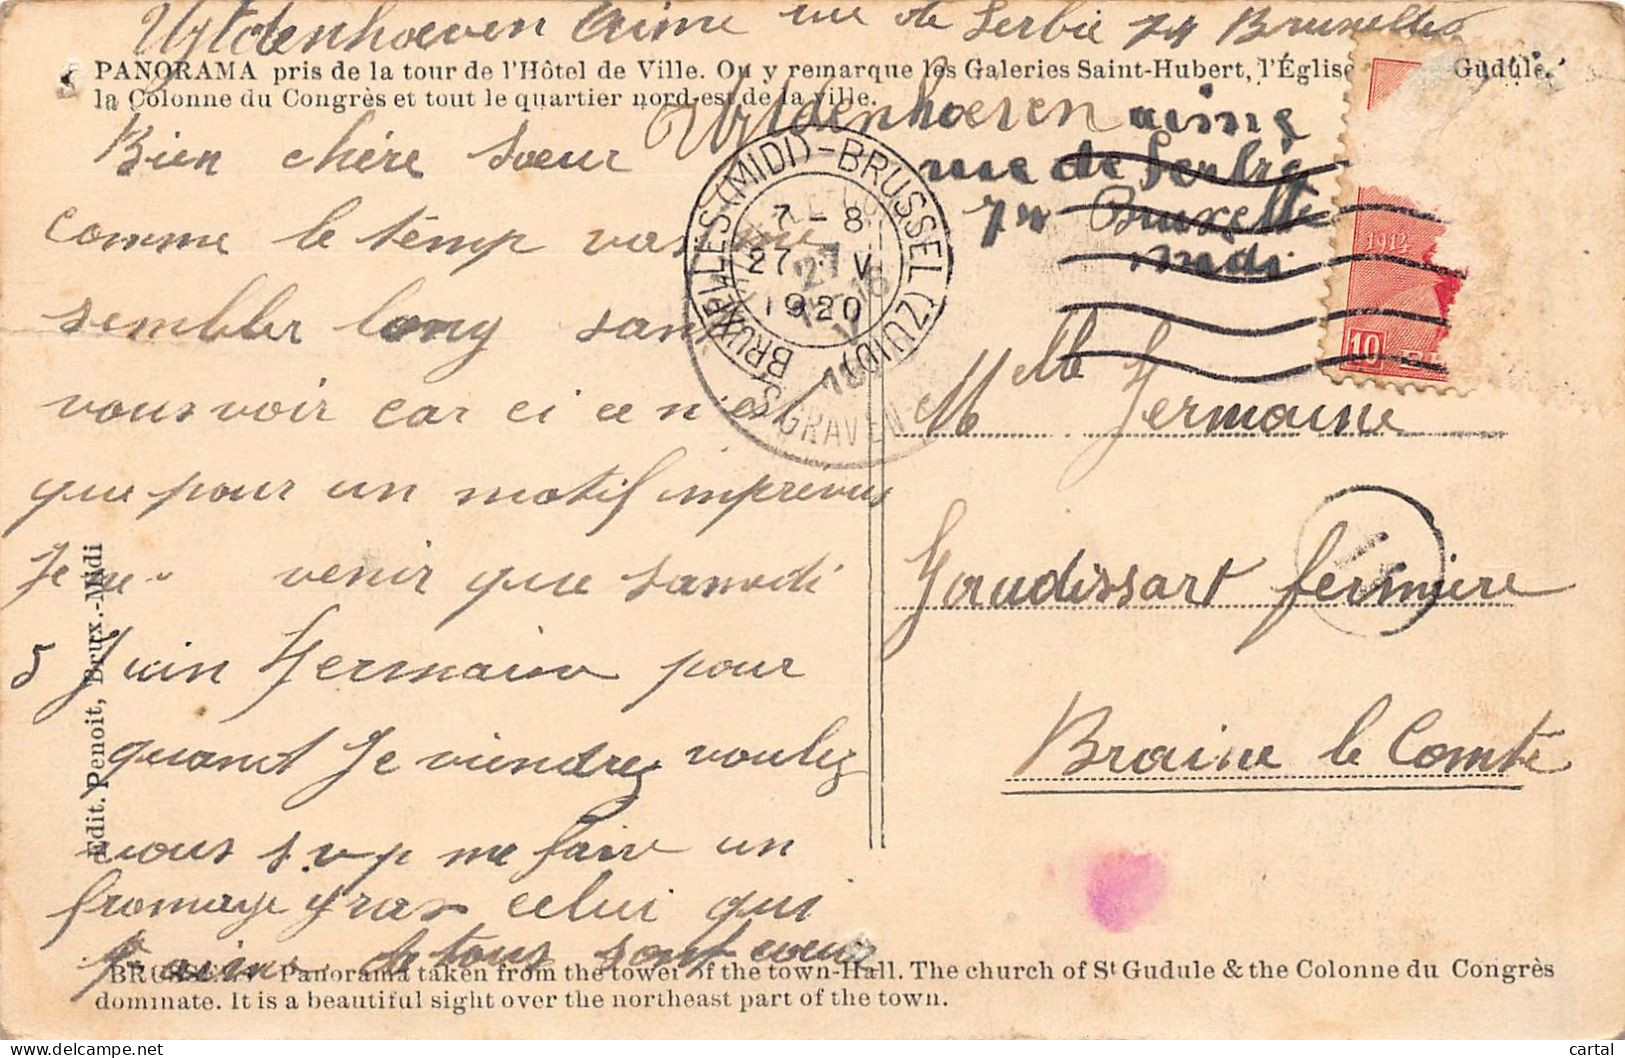 Uytdenhoeven Aimé rue de Serbie 74 Bruxelles
PANORAMA pris de la tour de l'Hôtel de Ville. On y remarque les Galeries Saint-Hubert, l'Église Gudule,
la Colonne du Congrès et tout le quartier nord-est de la ville.
Uytdenhoeven aime
rue de Serbie
74 Bruxelle
midi
BRUXELLES (MIDI) - BRUSSEL (ZUID)
7 - 8
27 V
1920
'S GRAVEN
1912
10
Bien chère soeur
comme le temp vas me
sembler long sans
vous voir car ci ce n'est
que pour un motif imprévus
Je ne venir que samedi
5 Juin Germaine pour
quand Je viendrez voulez
vous s.v.p me faire un
fromage gras celui qui
t'aime de tous sont coeur
Melle Germaine
Gaudissart fermiere
Braine le Comte
Edit. Penoit, Brux.-Midi
BRUSSELS Panorama taken from the tower of the town-Hall. The church of St Gudule & the Colonne du Congrès
dominate. It is a beautiful sight over the northeast part of the town.
delcampe.net
cartal